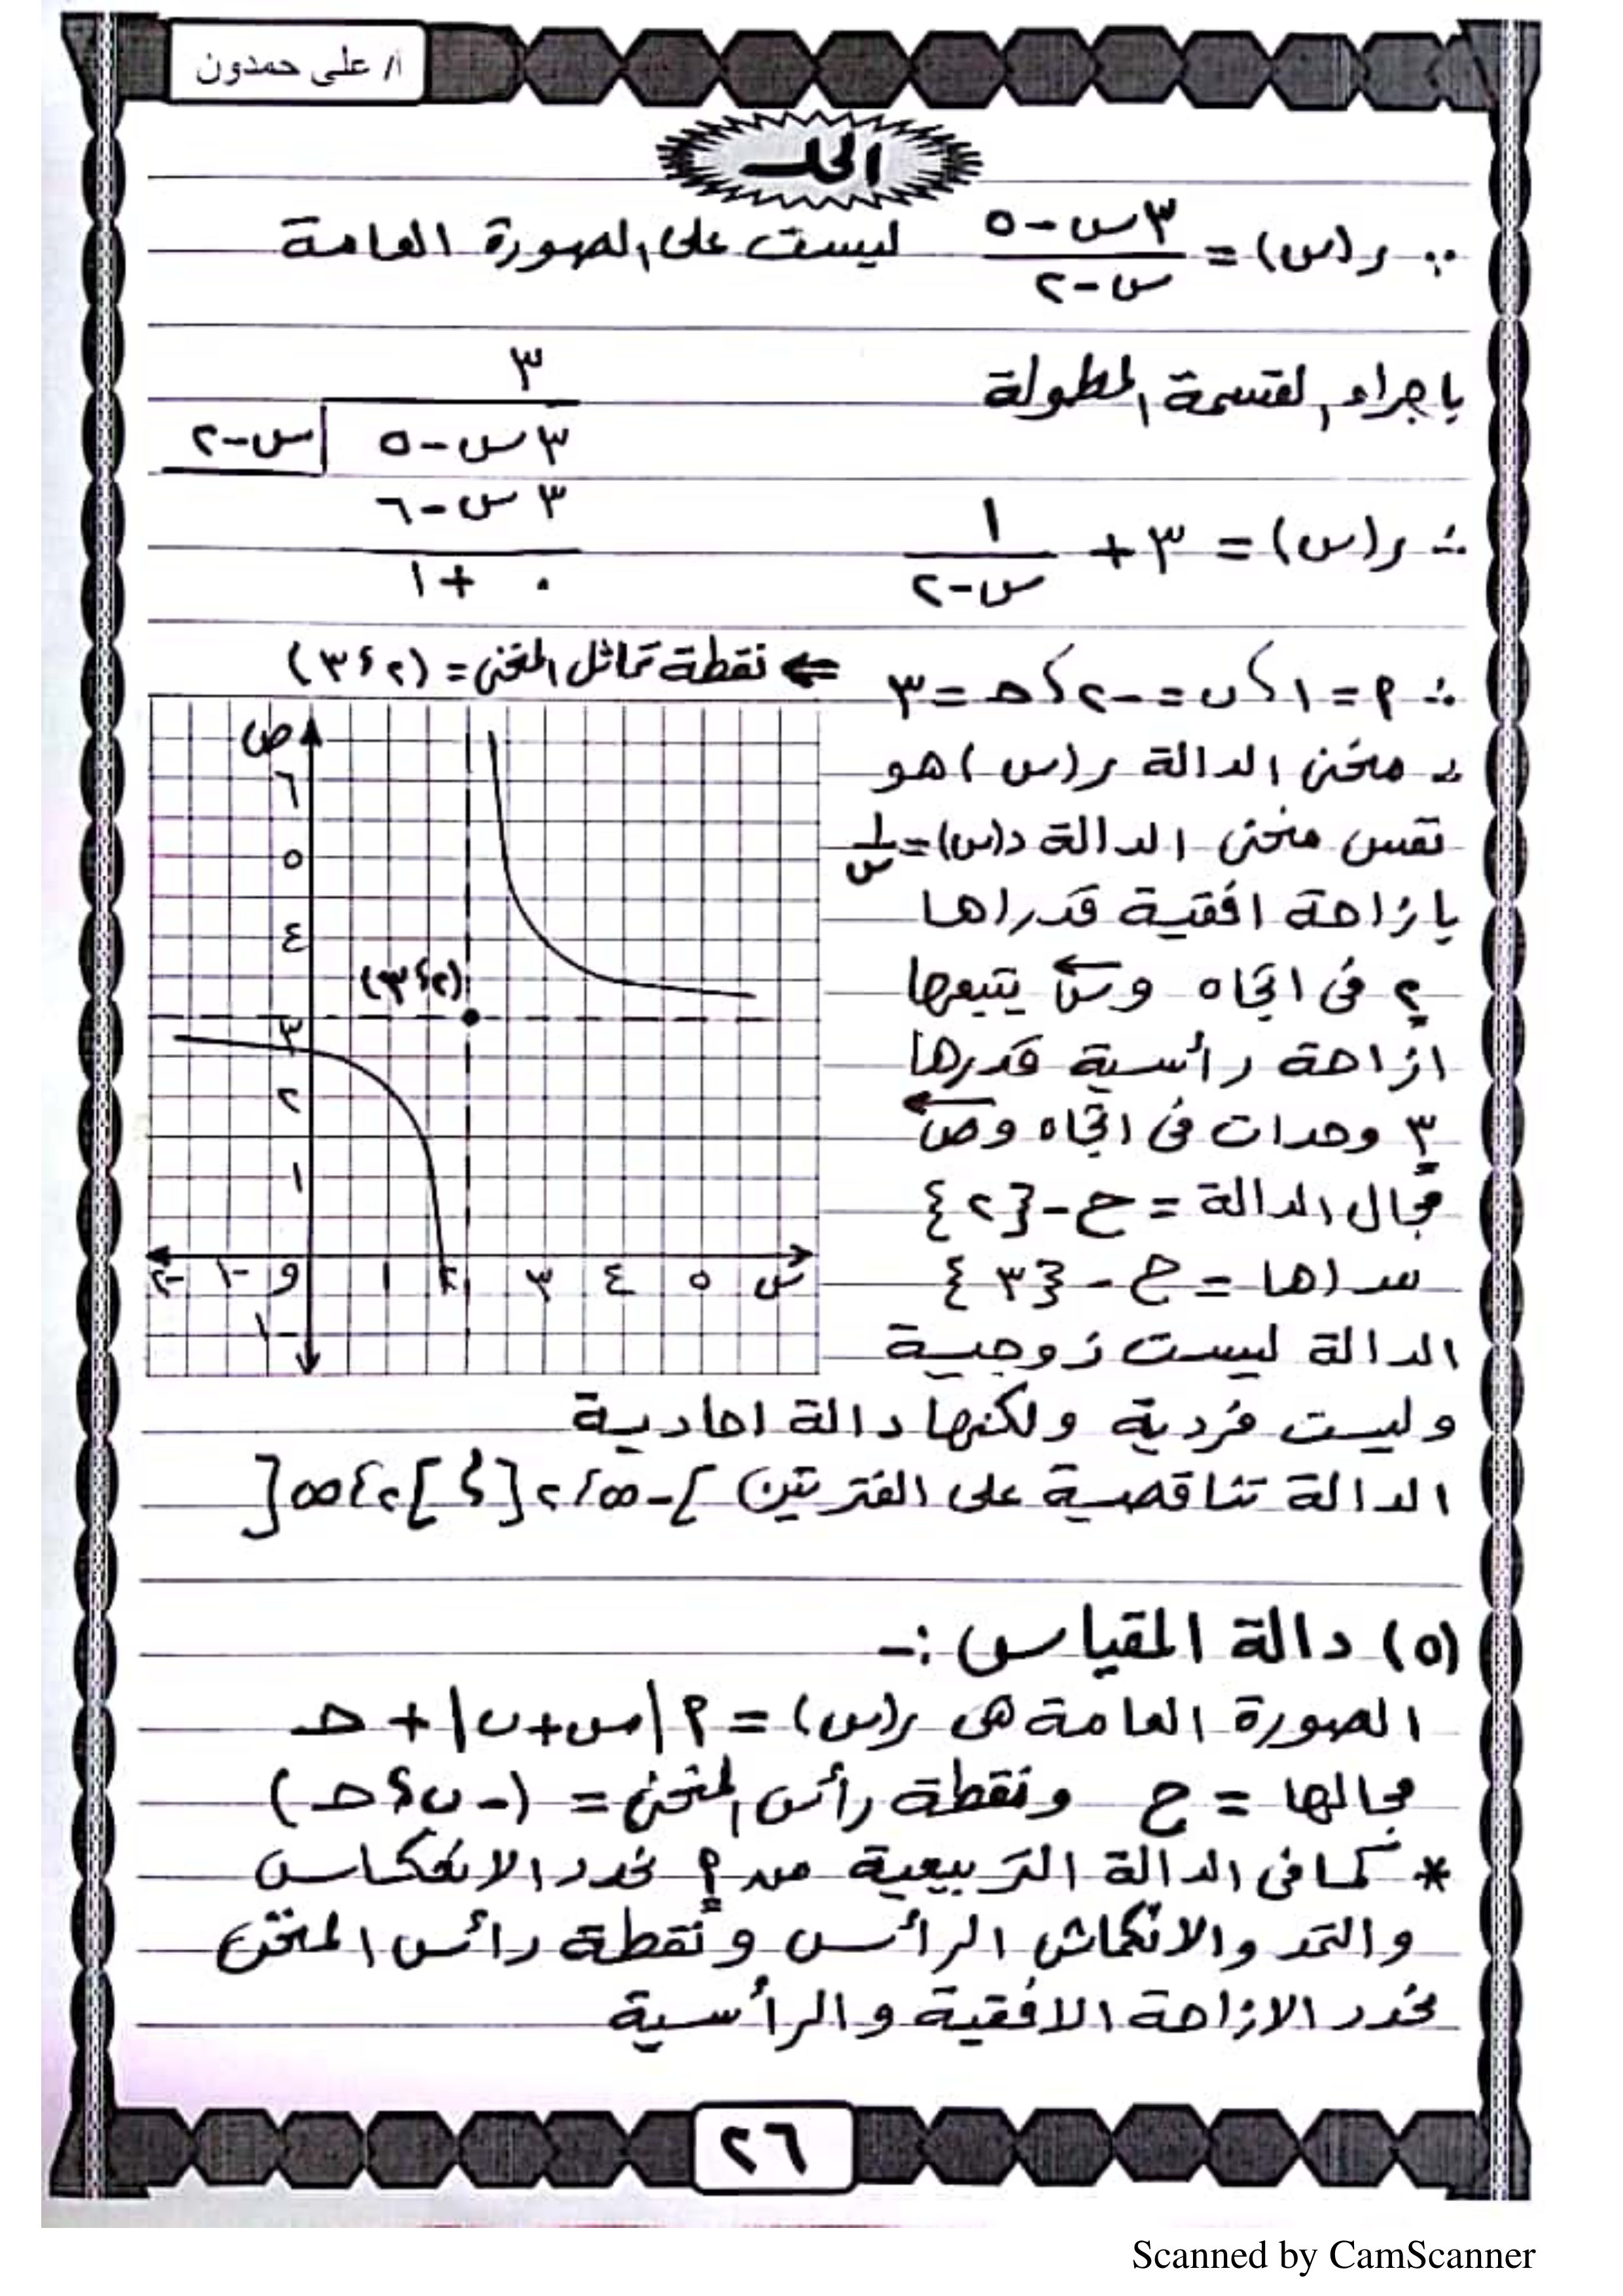 أ/ على حمدون
الحل
∵ ر(س) = (٣س - ٥)/(س - ٢) ليست على الصورة العامة
باجراء القسمة المطولة
٣
٣س - ٥ | س - ٢
٣س - ٦
٠ + ١
∴ ر(س) = ٣ + ١/(س - ٢)
∴ م = ١ ، ب = -٢ ، حـ = ٣ ⇐ نقطة تماثل المنحنى = (٢ ، ٣)
∴ منحنى الدالة ر(س) هو
نفس منحنى الدالة د(س) = ١/س
بازاحة افقية قدراها
٢ فى اتجاه وس يتبعها
ازاحة رأسية قدرها
٣ وحدات فى اتجاه وص
مجال الدالة = ح - {٢}
مداها = ح - {٣}
الدالة ليست زوجية
وليست فردية ولكنها دالة احادية
الدالة تناقصية على الفترتين ]-∞ ، ٢[ ، ]٢ ، ∞[
ص
٦
٥
٤
(٢ ، ٣)
٣
٢
١
-٢ -١ و ١ ٢ ٣ ٤ ٥ س
-١
(٥) دالة المقياس :-
الصورة العامة هى ر(س) = م |س + ب| + حـ
مجالها = ح ونقطة رأس المنحنى = (-ب ، حـ)
* كما فى الدالة التربيعية من م نحدد الانعكاس
والتمد والانكماش الرأس ونقطة رائس المنحنى
نحدد الازاحة الافقية والرأسية
٢٦
Scanned by CamScanner